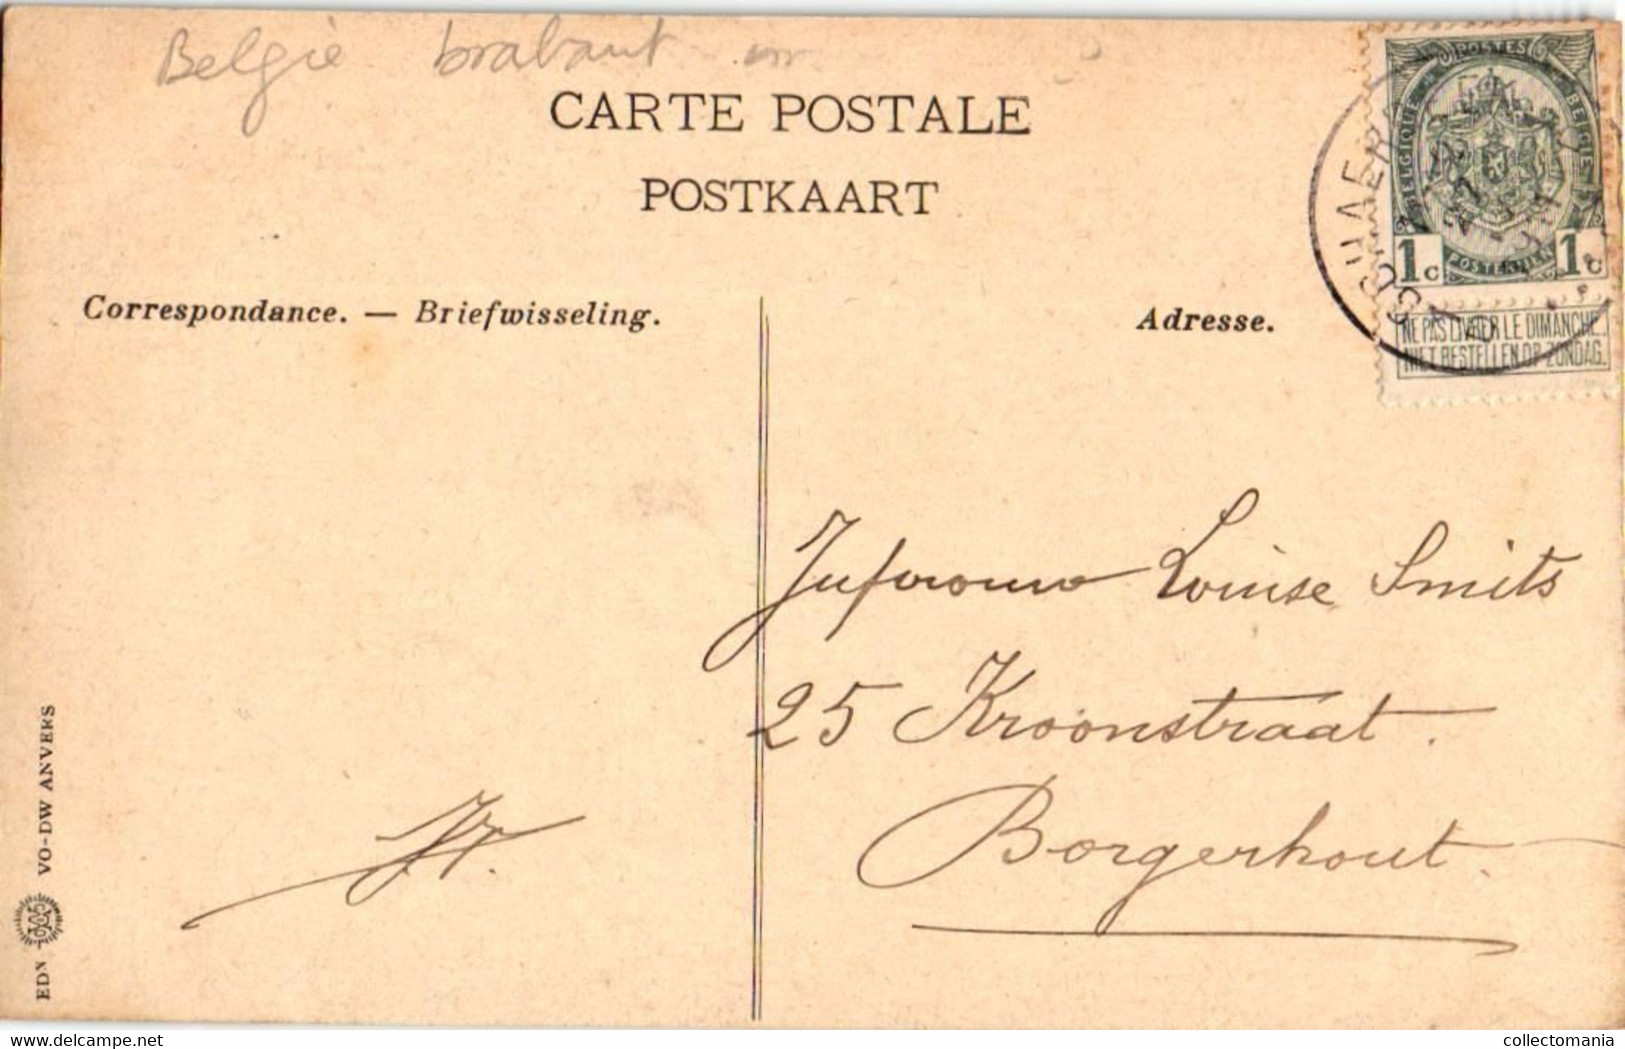 België brabant
CARTE POSTALE
POSTKAART
POSTES
BELGIQUE
BELGIE
POSTERIJEN
1c 1c
NE PAS LIVRER LE DIMANCHE.
NIET BESTELLEN OP ZONDAG.
Correspondance. — Briefwisseling.
Adresse.
Jufvrouw Louise Smits
25 Kroonstraat.
Borgerhout.
EDN VO-DW ANVERS
delcampe.net
collectomania